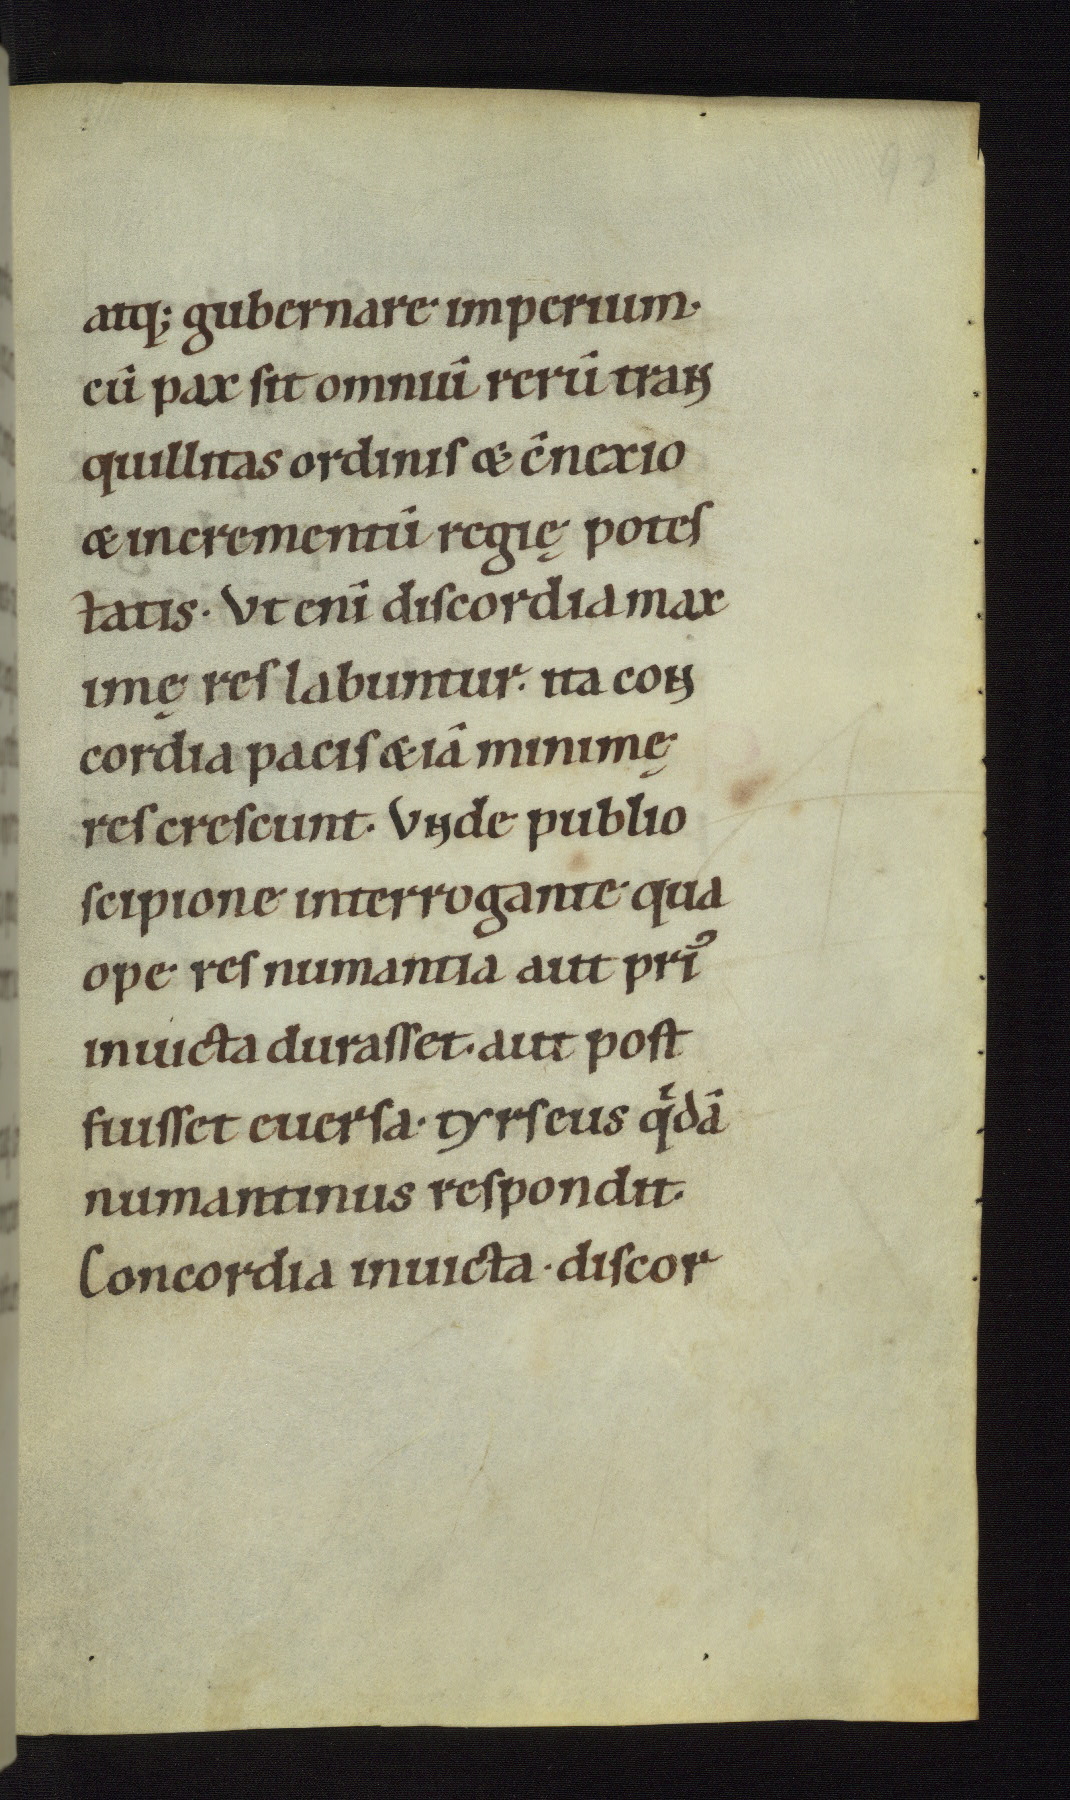 92
atq; gubernare imperium·
cū pax ſit omniū rerū tran
quillitas ordiniſ & c̄nexio
& incrementū regię poteſ
tatis· Vt enī diſcordia max
imę reſ labuntur· ita con
cordia paciſ &iā minimę
reſ creſcunt· Vnde publio
ſcipione interrogante qua
ope reſ numantia aut pri᷒
inuicta duraſſet· aut poſt
fuiſſet euerſa· tyrſeus qͥdā
numantinus reſpondit·
Concordia inuicta· diſcor